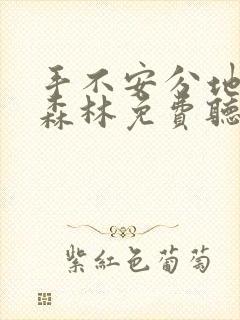 手不安分地
森林免费聽
紫紅色葡萄